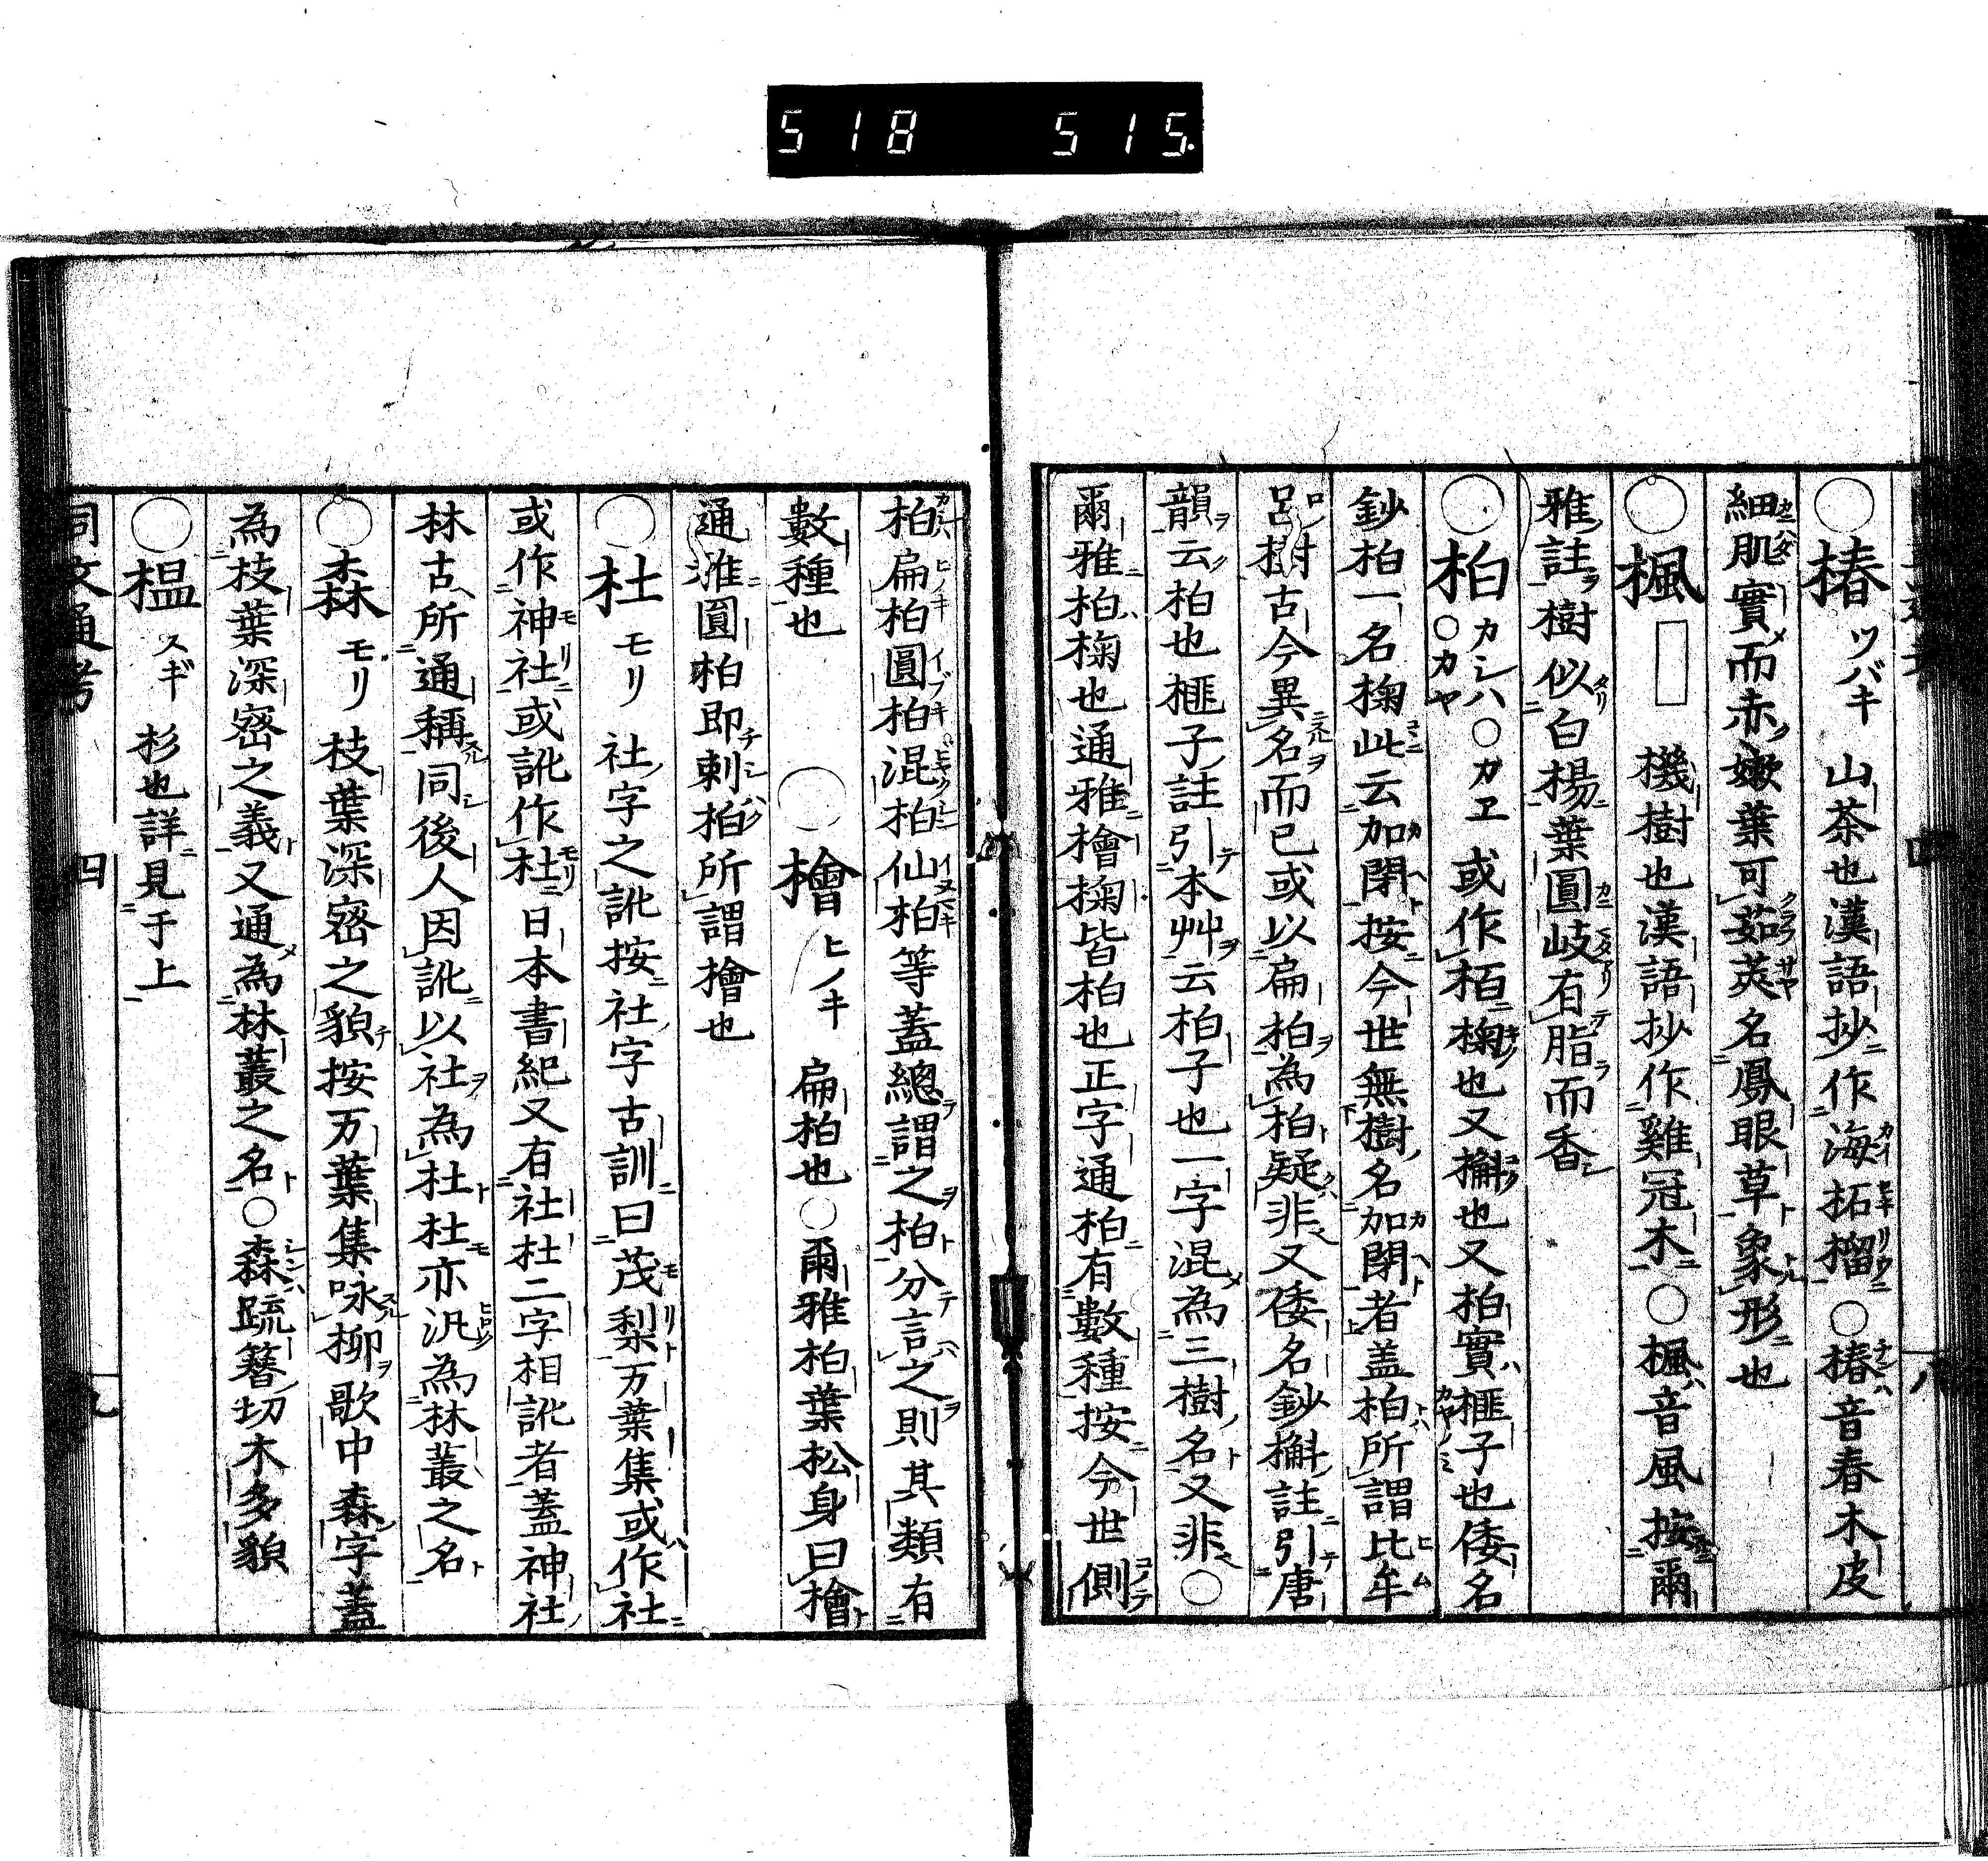 518 515.
○椿 ツバキ 山茶也漢語抄作海拓榴○椿音春木皮
細肌實而赤嫩葉可茹莢名鳳眼草象形也
○楓 機樹也漢語抄作雞冠木○楓音風按爾
雅註樹似白楊葉圓岐有脂而香
○柏 カシハ○カエ○カヤ 或作栢椈也又槲也又柏實榧子也倭名
鈔柏一名椈此云加閉按今世無樹名加閉者盖柏所謂比牟
呂樹古今異名而已或以扁柏為柏疑非又倭名鈔槲註引唐
韻云柏也榧子註引本艸云柏子也一字混為三樹名又非○
爾雅柏椈也通雅檜椈皆柏也正字通柏有數種按今世側
柏扁柏圓柏混柏仙柏等蓋總謂之柏分言之則其類有
數種也 ○檜 ヒノキ 扁柏也○爾雅柏葉松身曰檜
通雅圓柏即刺柏所謂檜也
○杜 モリ 社字之訛按社字古訓曰茂梨万葉集或作社
或作神社或訛作杜日本書紀又有社杜二字相訛者蓋神社
林古所通稱同後人因訛以社為杜杜亦汎為林叢之名
○森 モリ 枝葉深密之貌按万葉集咏柳歌中森字蓋
為枝葉深密之義又通為林叢之名○森疏簪切木多貌
○榲 スギ 杉也詳見于上
同文通考 四 九